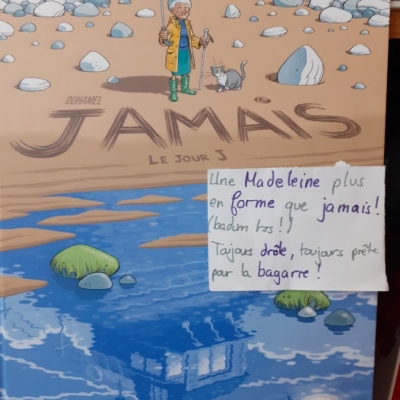 DUHAMEL
JAMAIS
LE JOUR J
Une Madeleine plus
en forme que jamais!
(badum tss!)
Toujours drôle, toujours prête
pour la bagarre!